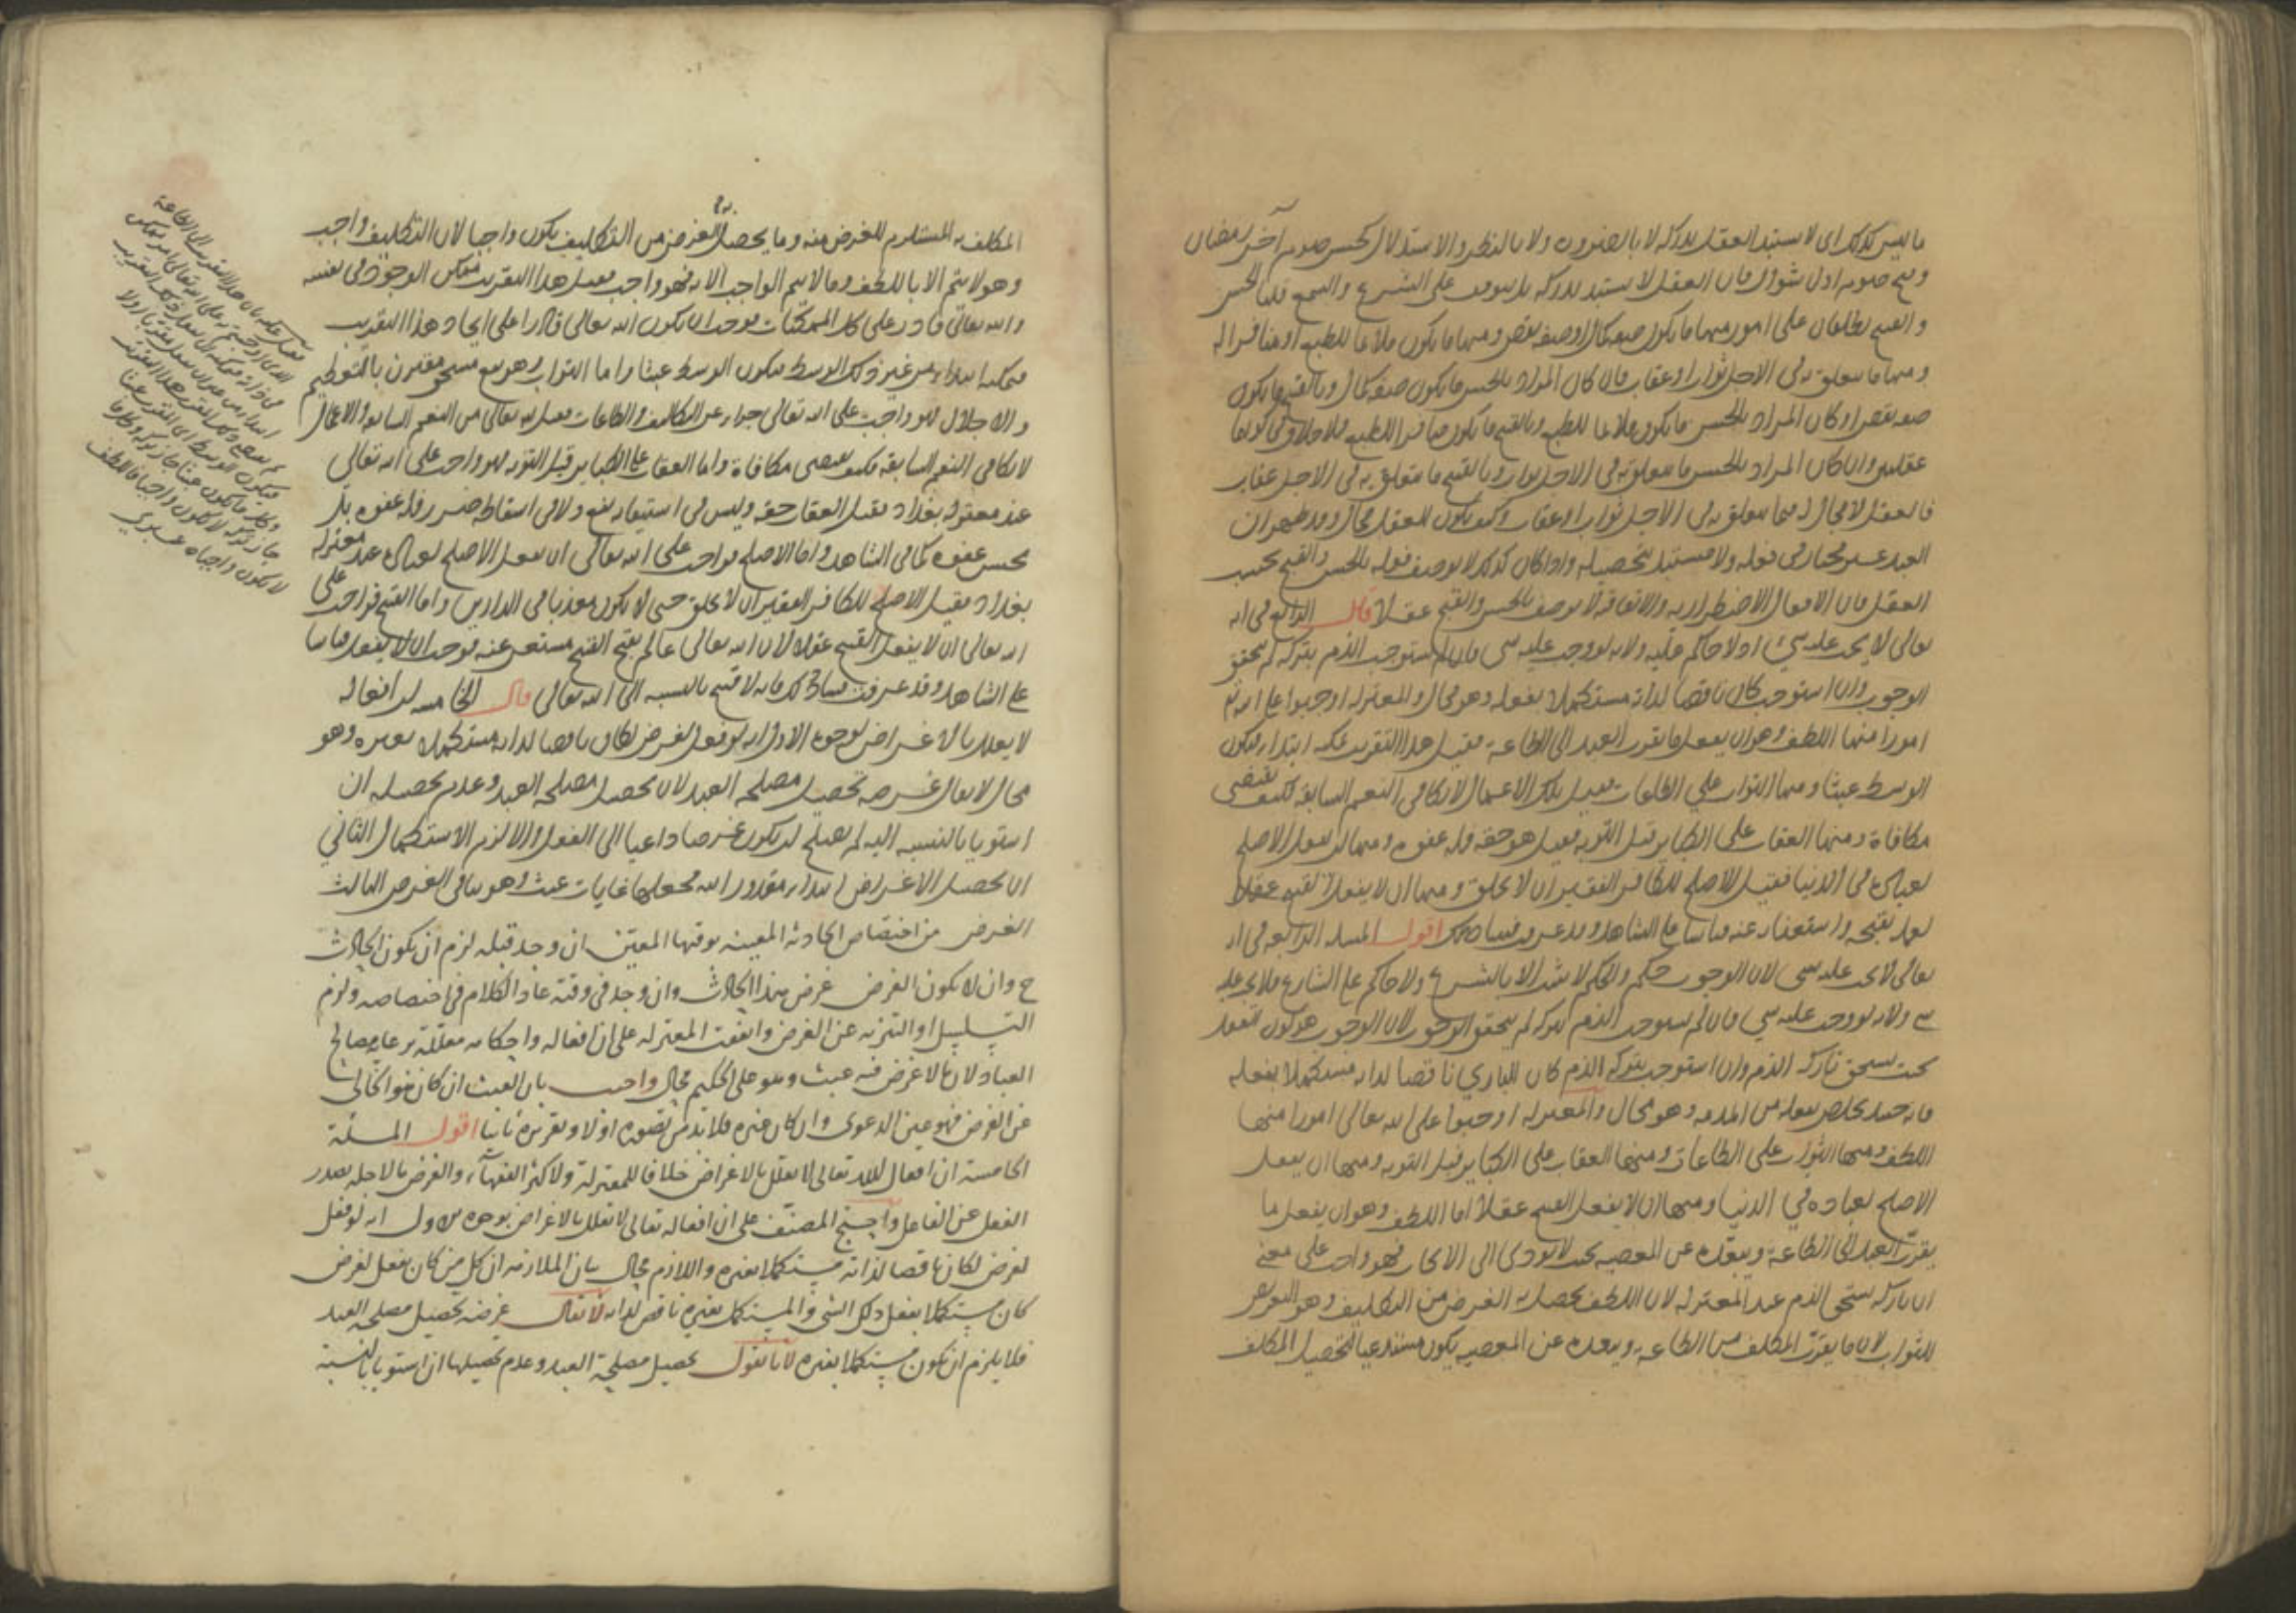 ما ليس كذلك اى لا يستبد العقل بدركه لا بالضرورة ولا بالنظر والاستدلال كحسن صوم آخر رمضان
وقبح صوم اول شوال فان العقل لا يستبد بدركه بل يتوقف على الشرع والسمع قلنا الحسن
و القبح يطلقان على امور منها ما يكون صفة كمال او صفة نقص ومنها ما يكون ملائما للطبع او منافرا له
ومنها ما يتعلق به فى الاجل ثواب او عقاب فان كان المراد بالحسن ما يكون صفة كمال وبالقبح ما يكون
صفة نقص او كان المراد بالحسن ما يكون ملائما للطبع وبالقبح ما يكون منافرا للطبع فلا خلاف فى كونهما
عقليين وان كان المراد بالحسن ما يتعلق به فى الاجل ثواب وبالقبح ما يتعلق به فى الاجل عقاب
فالعقل لا مجال له فيما يتعلق به فى الاجل ثواب او عقاب وكيف يكون للعقل مجال وقد ظهر ان
العبد غير مختار فى فعله ولا مستبد بتحصيله واذا كان كذلك لا يوصف فعله بالحسن والقبح بحسب
العقل فان الافعال الاضطرارية والاتفاقية لا يوصف بالحسن والقبح عقلا قال الرابعة فى انه
تعالى لا يجب عليه شىء اذ لا حاكم عليه ولانه لو وجب عليه شى فان لم يستوجب الذم بتركه لم يتحقق
الوجوب وان استوجب كان ناقصا لذاته مستكملا بفعله وهو محال والمعتزلة اوجبوا على الله تع
امورا منها اللطف وهو ان يفعل ما يقرب العبد الى الطاعة فقيل هذا التقريب يمكنه ابتداء فيكون
الوسط عبثا ومنها الثواب على الطاعات فقيل تلك الاعمال لا تكافى النعم السابقة فكيف يقتضى
مكافاة ومنها العقاب على الكبائر قبل التوبة فقيل هو حقه فله عفوه ومنها ان يفعل الاصلح
لعباده فى الدنيا فقيل الاصلح للكافر الفقير ان لا يخلق ومنها ان لا يفعل القبيح عقلا
لعلمه بقبحه واستغنائه عنه قياسا على الشاهد وقد عرفت فساد ذلك اقول المسئلة الرابعة فى انه
تعالى لا يجب عليه شى لان الوجوب حكم والحكم لا يثبت الا بالشرع ولا حاكم على الشارع فلا يجب عليه
شى ولانه لو وجب عليه شى فان لم يستوجب الذم بتركه لم يتحقق الوجوب لان الوجوب هو كون الفعل
بحيث يستحق تاركه الذم وان استوجب بتركه الذم كان البارى ناقصا لذاته مستكملا بفعله
فانه حينئذ يخلص بفعله من المذمة وهو محال والمعتزلة اوجبوا على الله تعالى امورا منها
اللطف ومنها الثواب على الطاعات ومنها العقاب على الكبائر قبل التوبة ومنها ان يفعل
الاصلح لعباده فى الدنيا ومنها ان لا يفعل القبيح عقلا اما اللطف وهو ان يفعل ما
يقرب العبد الى الطاعة ويبعده عن المعصية بحيث لا يؤدى الى الالجاء فهو واجب على معنى
ان تاركه يستحق الذم عند المعتزلة لان اللطف يحصل به الغرض من التكليف وهو التعريض
للثواب لان ما يقرب المكلف من الطاعة ويبعده عن المعصية يكون مستدعيا لتحصيل المكلف
المكلف به المستلزم للغرض منه وما يحصل به الغرض من التكليف يكون واجبا لان التكليف واجب
وهو لا يتم الا باللطف وما لا يتم الواجب الا به فهو واجب فقيل هذا التقريب ممكن الوجود فى نفسه
والله تعالى قادر على كل الممكنات فوجب ان يكون الله تعالى قادرا على ايجاد هذا التقريب
فيمكنه ابتداء من غير ذلك الوسط فيكون الوسط عبثا واما الثواب وهو نفع مستحق مقترن بالتعظيم
والاجلال فهو واجب على الله تعالى جزاء عن التكاليف والطاعات فقيل له تعالى من النعم السابقة والاعمال
لا تكافى النعم السابقة فكيف يقتضى مكافاة واما العقاب على الكبائر قبل التوبة فهو واجب على الله تعالى
عند معتزلة بغداد فقيل العقاب حقه وليس فى استيفائه نفع ولا فى اسقاطه ضرر فله عفوه بل
يحسن عفوه كما فى الشاهد واما الاصلح فواجب على الله تعالى ان يفعل الاصلح لعباده عند معتزلة
بغداد فقيل الاصلح للكافر الفقير ان لا يخلق حتى لا يكون معذبا فى الدارين واما القبيح فواجب على
الله تعالى ان لا يفعل القبيح عقلا لان الله تعالى عالم بقبح القبيح مستغن عنه فوجب ان لا يفعله قياسا
على الشاهد وقد عرفت فساد ذلك فانه لا قبيح بالنسبة الى الله تعالى قال الخامسة ان افعاله
لا يعلل بالاغراض لوجوه الاول انه لو فعل لغرض لكان ناقصا لذاته مستكملا بغيره وهو
محال لا يقال غرضه تحصيل مصلحة العبد لان تحصيل مصلحة العبد وعدم تحصيله ان
استويا بالنسبة اليه لم يصلح ان يكون غرضا داعيا الى الفعل والا لزم الاستكمال الثانى
ان تحصيل الاغراض ابتداء مقدور الله فجعلها غايات عبث وهو ينافى الغرض الثالث
الغرض من اختصاص الحادثة المعينة بوقتها المعين ان وجد قبله لزم ان يكون الحادث
ح وان لا يكون الغرض غرض هذا الحادث وان وجد فى وقته عاد الكلام فى اختصاصه ولزم
التسلسل او التنزيه عن الغرض واتفقت المعتزلة على ان افعاله واحكامه معللة برعاية مصالح
العباد لان ما لا غرض فيه عبث وهو على الحكيم محال واجيب بان العبث ان كان هو الخالى
عن الغرض فهو عين الدعوى وان كان غيره فلا بد من تصوره اولا وتقريره ثانيا اقول المسئلة
الخامسة ان افعال الله تعالى لا تعلل بالاغراض خلافا للمعتزلة ولاكثر الفقهاء والغرض ما لاجله يصدر
الفعل عن الفاعل واحتج المصنف على ان افعاله تعالى لا تعلل بالاغراض بوجوه الاول انه لو فعل
لغرض لكان ناقصا لذاته مستكملا بغيره واللازم محال بيان الملازمة ان كل من كان يفعل لغرض
كان مستكملا بفعل ذلك الشى والمستكمل بغيره ناقص لذاته لا يقال غرضه تحصيل مصلحة العبد
فلا يلزم ان يكون مستكملا بغيره لانا نقول تحصيل مصلحة العبد وعدم تحصيلها ان استويا بالنسبة
فيكون الوسط
لا يكون واجبا عبرى